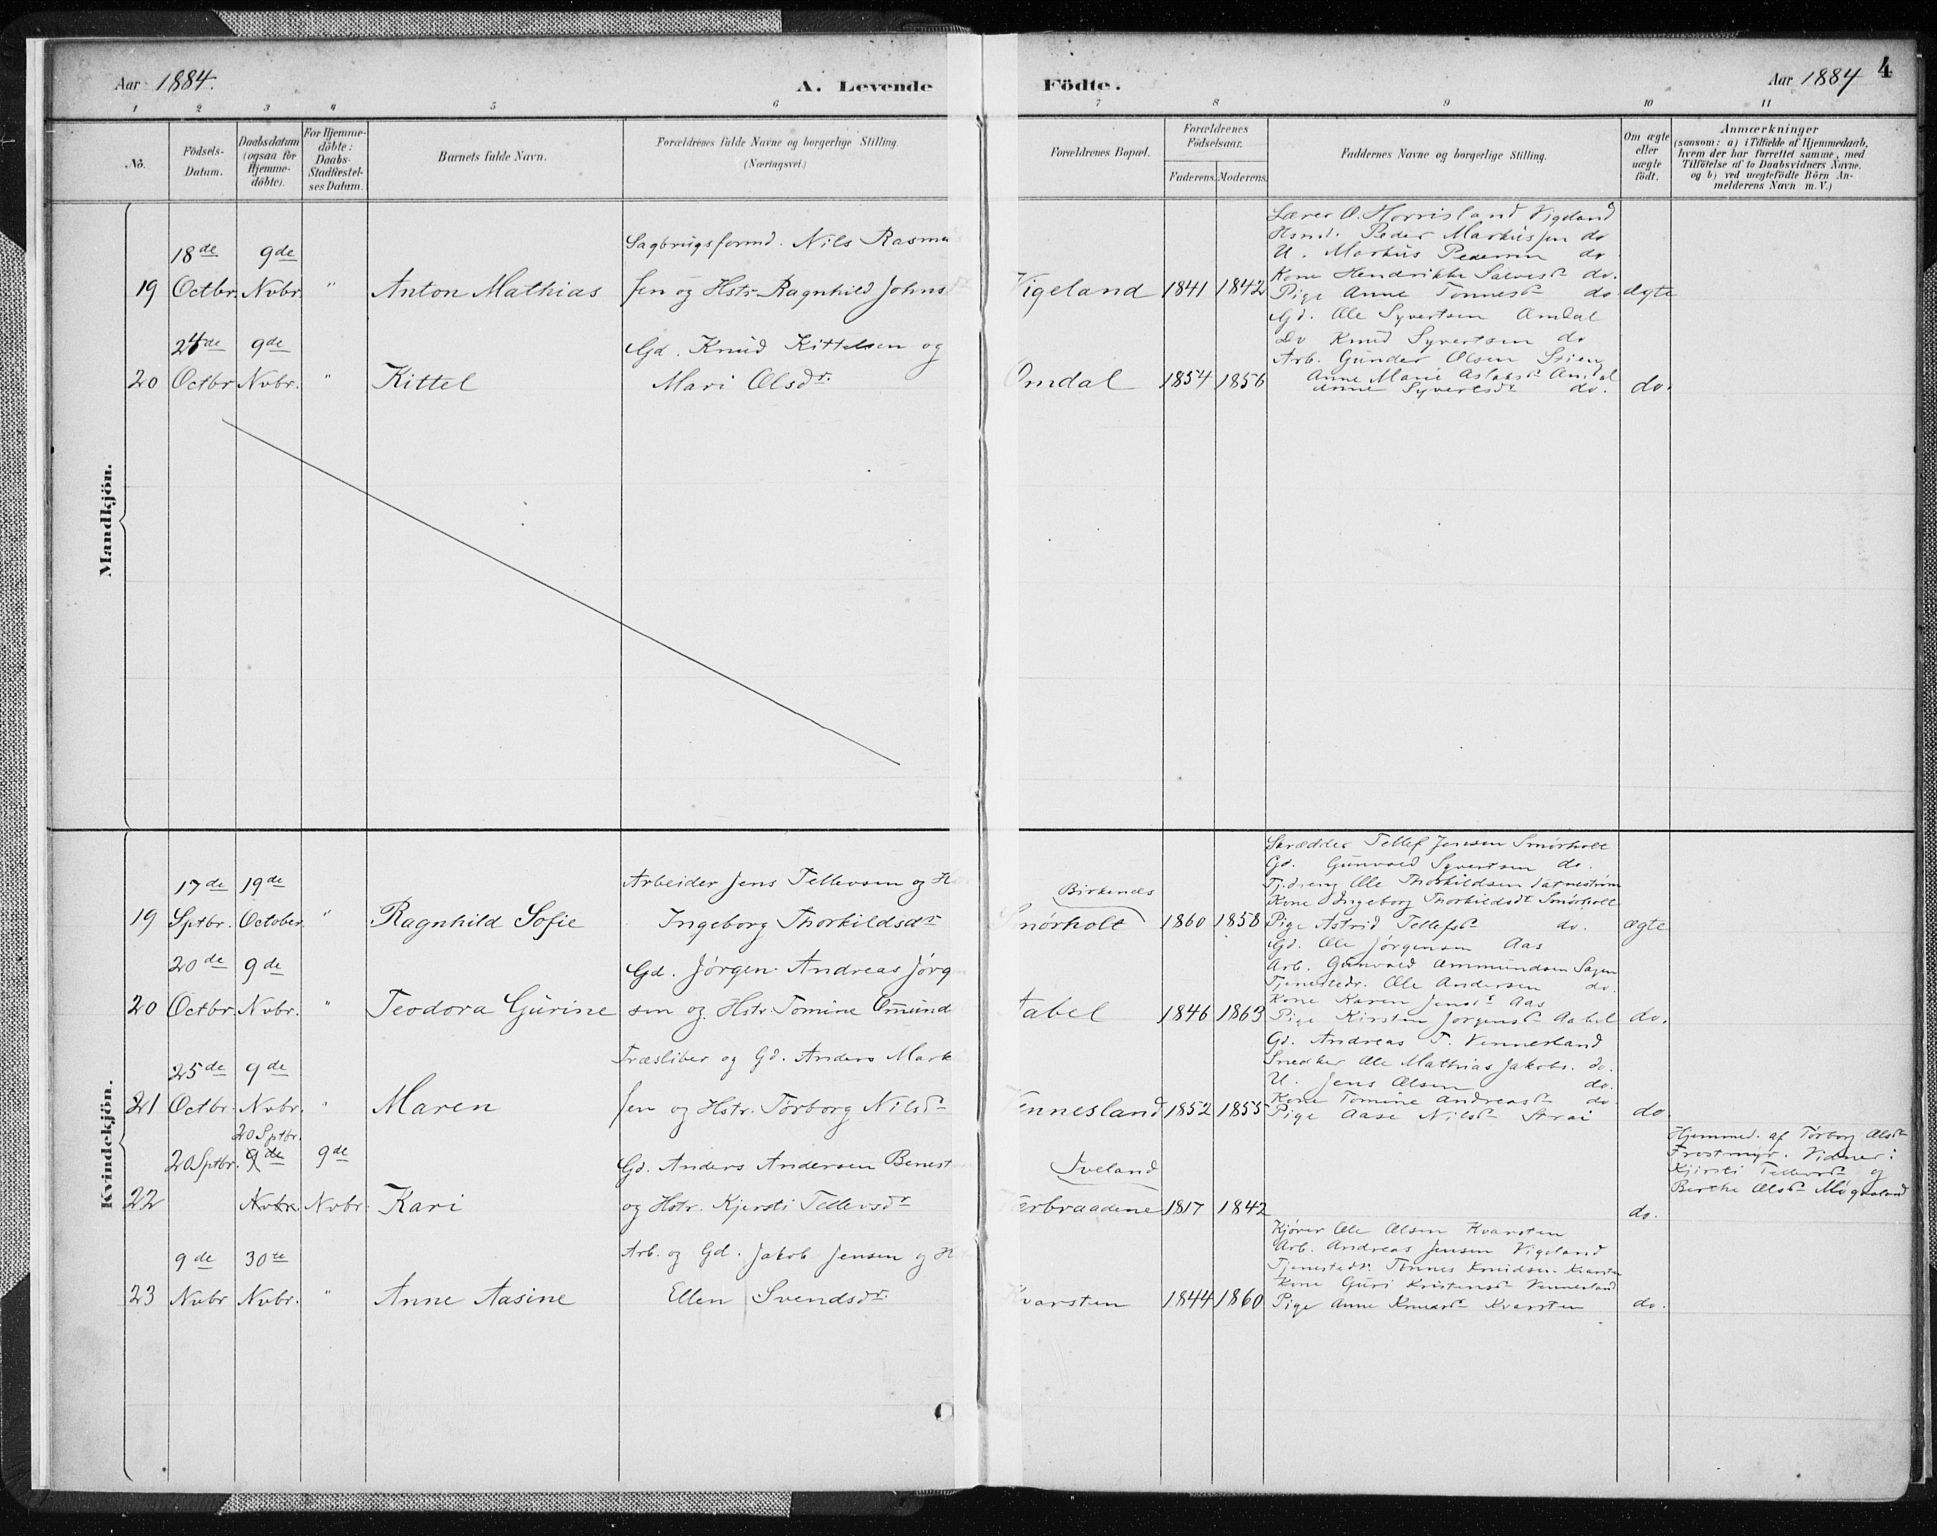 Aar 1884.
A. Levende Födte.
Aar 1884
4
1 2 3 4 5 6 7 8 9 10 11
No.
Födsels-Datum.
Daabsdatum (ogsaa för Hjemme-döbte).
For Hjemme-döbte: Daabs-Stadfæstel-ses Datum.
Barnets fulde Navn.
Forældrenes fulde Navne og borgerlige Stilling. (Næringsvei.)
Forældrenes Bopæl.
Forældrenes Födselsaar.
Faderens. Moderens.
Faddernes Navne og borgerlige Stilling.
Om ægte eller uægte født.
Anmærkninger
(saasom: a) i Tilfælde af Hjemmedaab, hvem der har forrettet samme, med Tilföielse af to Daabsvidners Navne, og b) ved uægtefödte Börn An-melderens Navn m. V.)
Mandkjön.
19 18de Octbr. 9de Nvbr. " Anton Mathias
Sagbrugsformd. Nils Rasmus
sen og Hstr. Ragnhild Johns
Vigeland 1841 1842
Lærer O. Horrisland Vigeland
Hsmd. Peder Markussen do
U. Markus Pedersen do
Kone Hendrikke Salvesdr do.
Pige Anne Tønnesdr do
ægte
20 24de Octbr. 9de Nvbr. " Kittel
Gd. Knud Kittelsen og
Mari Olsdr.
Omdal 1854 1856
Gd. Ole Syvertsen Omdal
Do Knud Syvertsen do
Arb. Gunder Olsen Stien
Anne Marie Aslaksdr Omdal
Anne Syvertsdr do.
do.
Kvindekjön.
19 17de Sptbr. 19de October " Ragnhild Sofie
Arbeider Jens Tellevsen og H
Ingeborg Thorkildsdr
Birkenæs
Smørholt 1860 1858
Skrædder Tellef Jensen Smørholt
Gd. Gunvald Syvertsen do.
Tj.dreng Ole Thorkildsen
Kone Ingeborg Thorkildsdt Smørholt
Pige Astrid Tellefsdr do.
ægte
20 20de Octbr. 9de Nvbr. " Teodora Gurine
Gd. Jørgen Andreas Jørg
sen og Hstr. Tomine Omund
Aabel 1846 1863
Gd. Ole Jørgensen Aas
Arb. Gunvald Ommundsen Sagen
Tjenestedr. Ole Andersen do.
Kone Karen Jensdr Aas
Pige Kirsten Jørgensdr Aabel
do.
21 25de Octbr. 9de Nvbr. " Maren
Træsliber og Gd. Anders Mark
sen og Hstr. Tørborg Nilsdr
Vennesland 1852 1855
Gd. Andreas T. Vennesland
Snedker Ole Mathias Jakobs. do.
U. Jens Olsen do.
Kone Tomine Andreasdr do.
Pige Aase Nilsdr Strai
do.
22 20 Sptbr. 20 Sptbr. 9de Nvbr. 9de Nvbr. Kari
Gd. Anders Andersen Benest
og Hstr. Kjersti Tellevsdr
Iveland
1817 1842
do.
Hjemmed. af Tørborg Olsdr
Frostmyr. Vidner:
Kjersti Tellevsdr og
Berthe Olsdr
23 9de Nvbr 30te Nvbr. " Anne Aasine
Arb. og Gd. Jakob Jensen og H
Ellen Svendsdr.
Kvarsten 1844 1860
Kjører Ole Olsen Kvarsten
Arb. Andreas Jensen Vigeland
Tjenestedr. Tønnes Knudsen Kvarsten
Kone Guri Kristensdr Vennesland
Pige Anne Knudsdr Kvarsten
do.